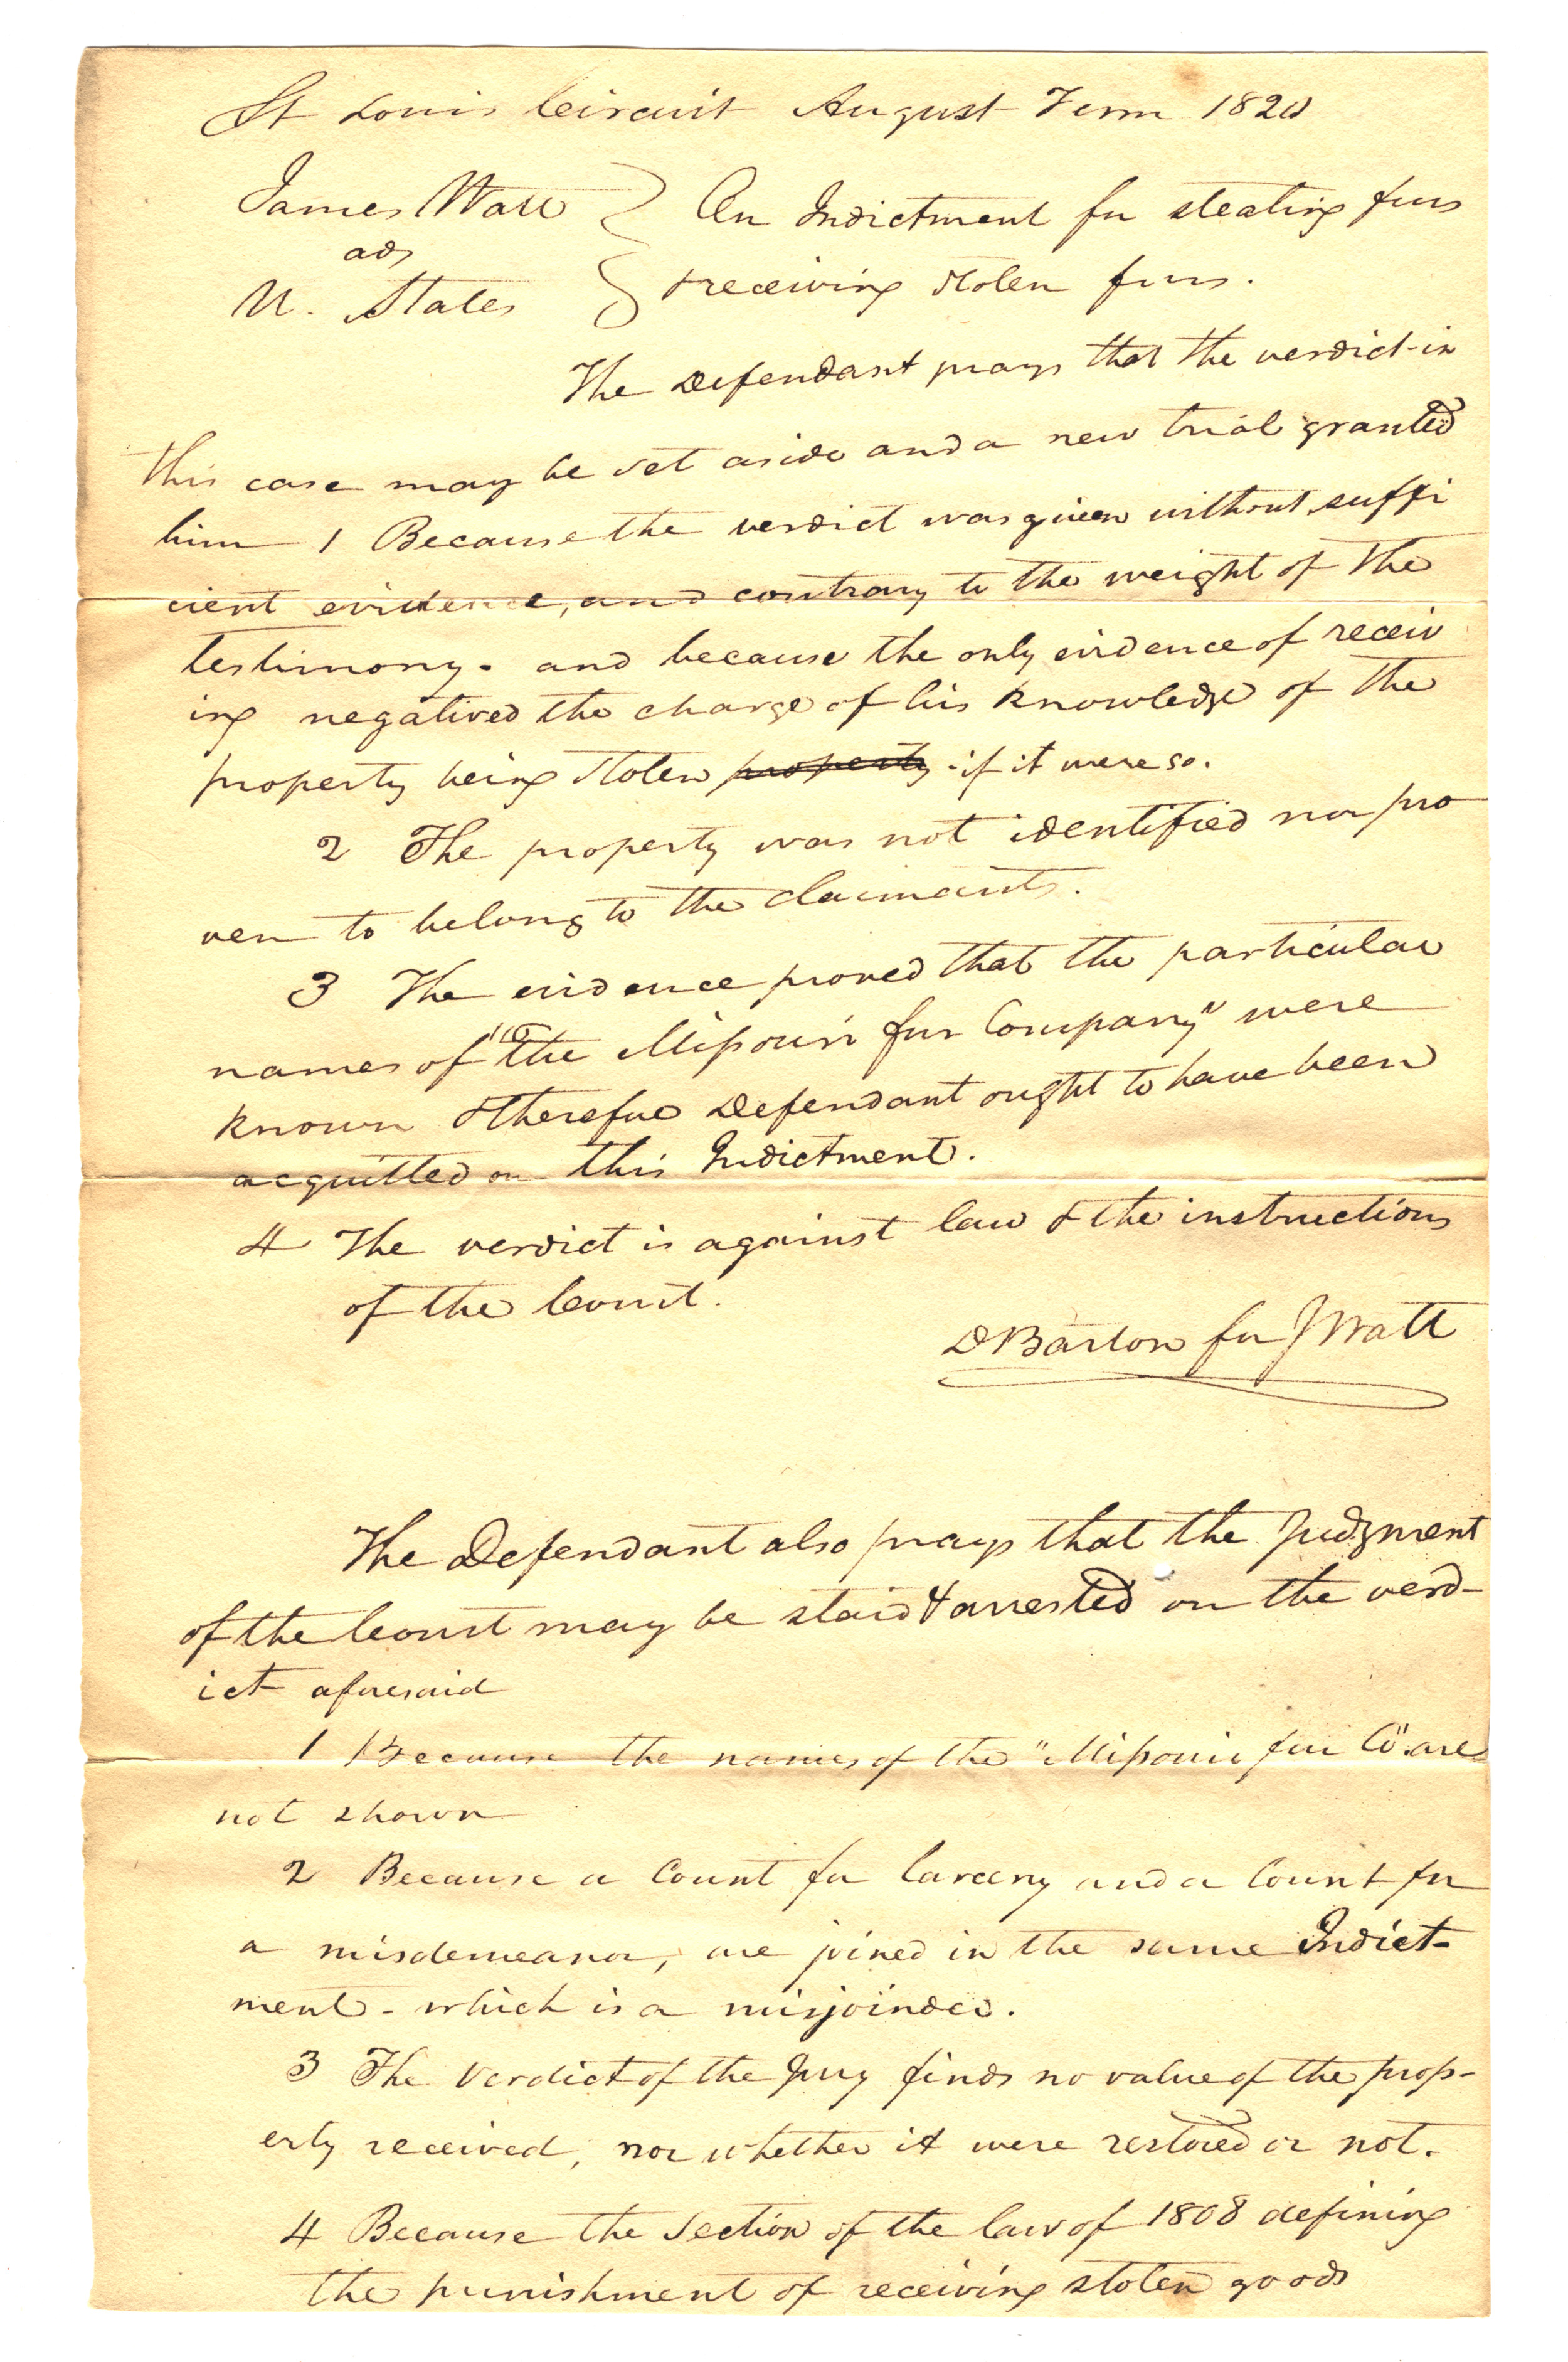 St Louis Circuit August Term 1820
James Watt } An Indictment for stealing furs
ads
U. States } & receiving stolen furs.
The Defendant prays that the verdict in
this case may be set aside and a new trial granted
him 1 Because the verdict was given without suffi
cient evidence, and contrary to the weight of the
testimony. and because the only evidence of receiv
ing negatived the charge of his knowledge of the
property being stolen property if it were so.
2 The property was not identified nor pro
ven to belong to the claimants.
3 The evidence proved that the particular
names of "the Missouri fur Company" were
known & therefore Defendant ought to have been
acquitted on this Indictment.
4 The verdict is against law & the instructions
of the Court.
D Barton for J Watt
The Defendant also prays that the Judgment
of the Court may be staid & arrested on the verd-
ict aforesaid
1 Because the names of the "Missouri fur Co" are
not shown
2 Because a Count for larceny and a Count for
a misdemeanor, are joined in the same Indict-
ment - which is a misjoinder.
3 The Verdict of the Jury finds no value of the prop-
erty received, nor whether it were restored or not.
4 Because the Section of the law of 1808 defining
the punishment of receiving stolen goods